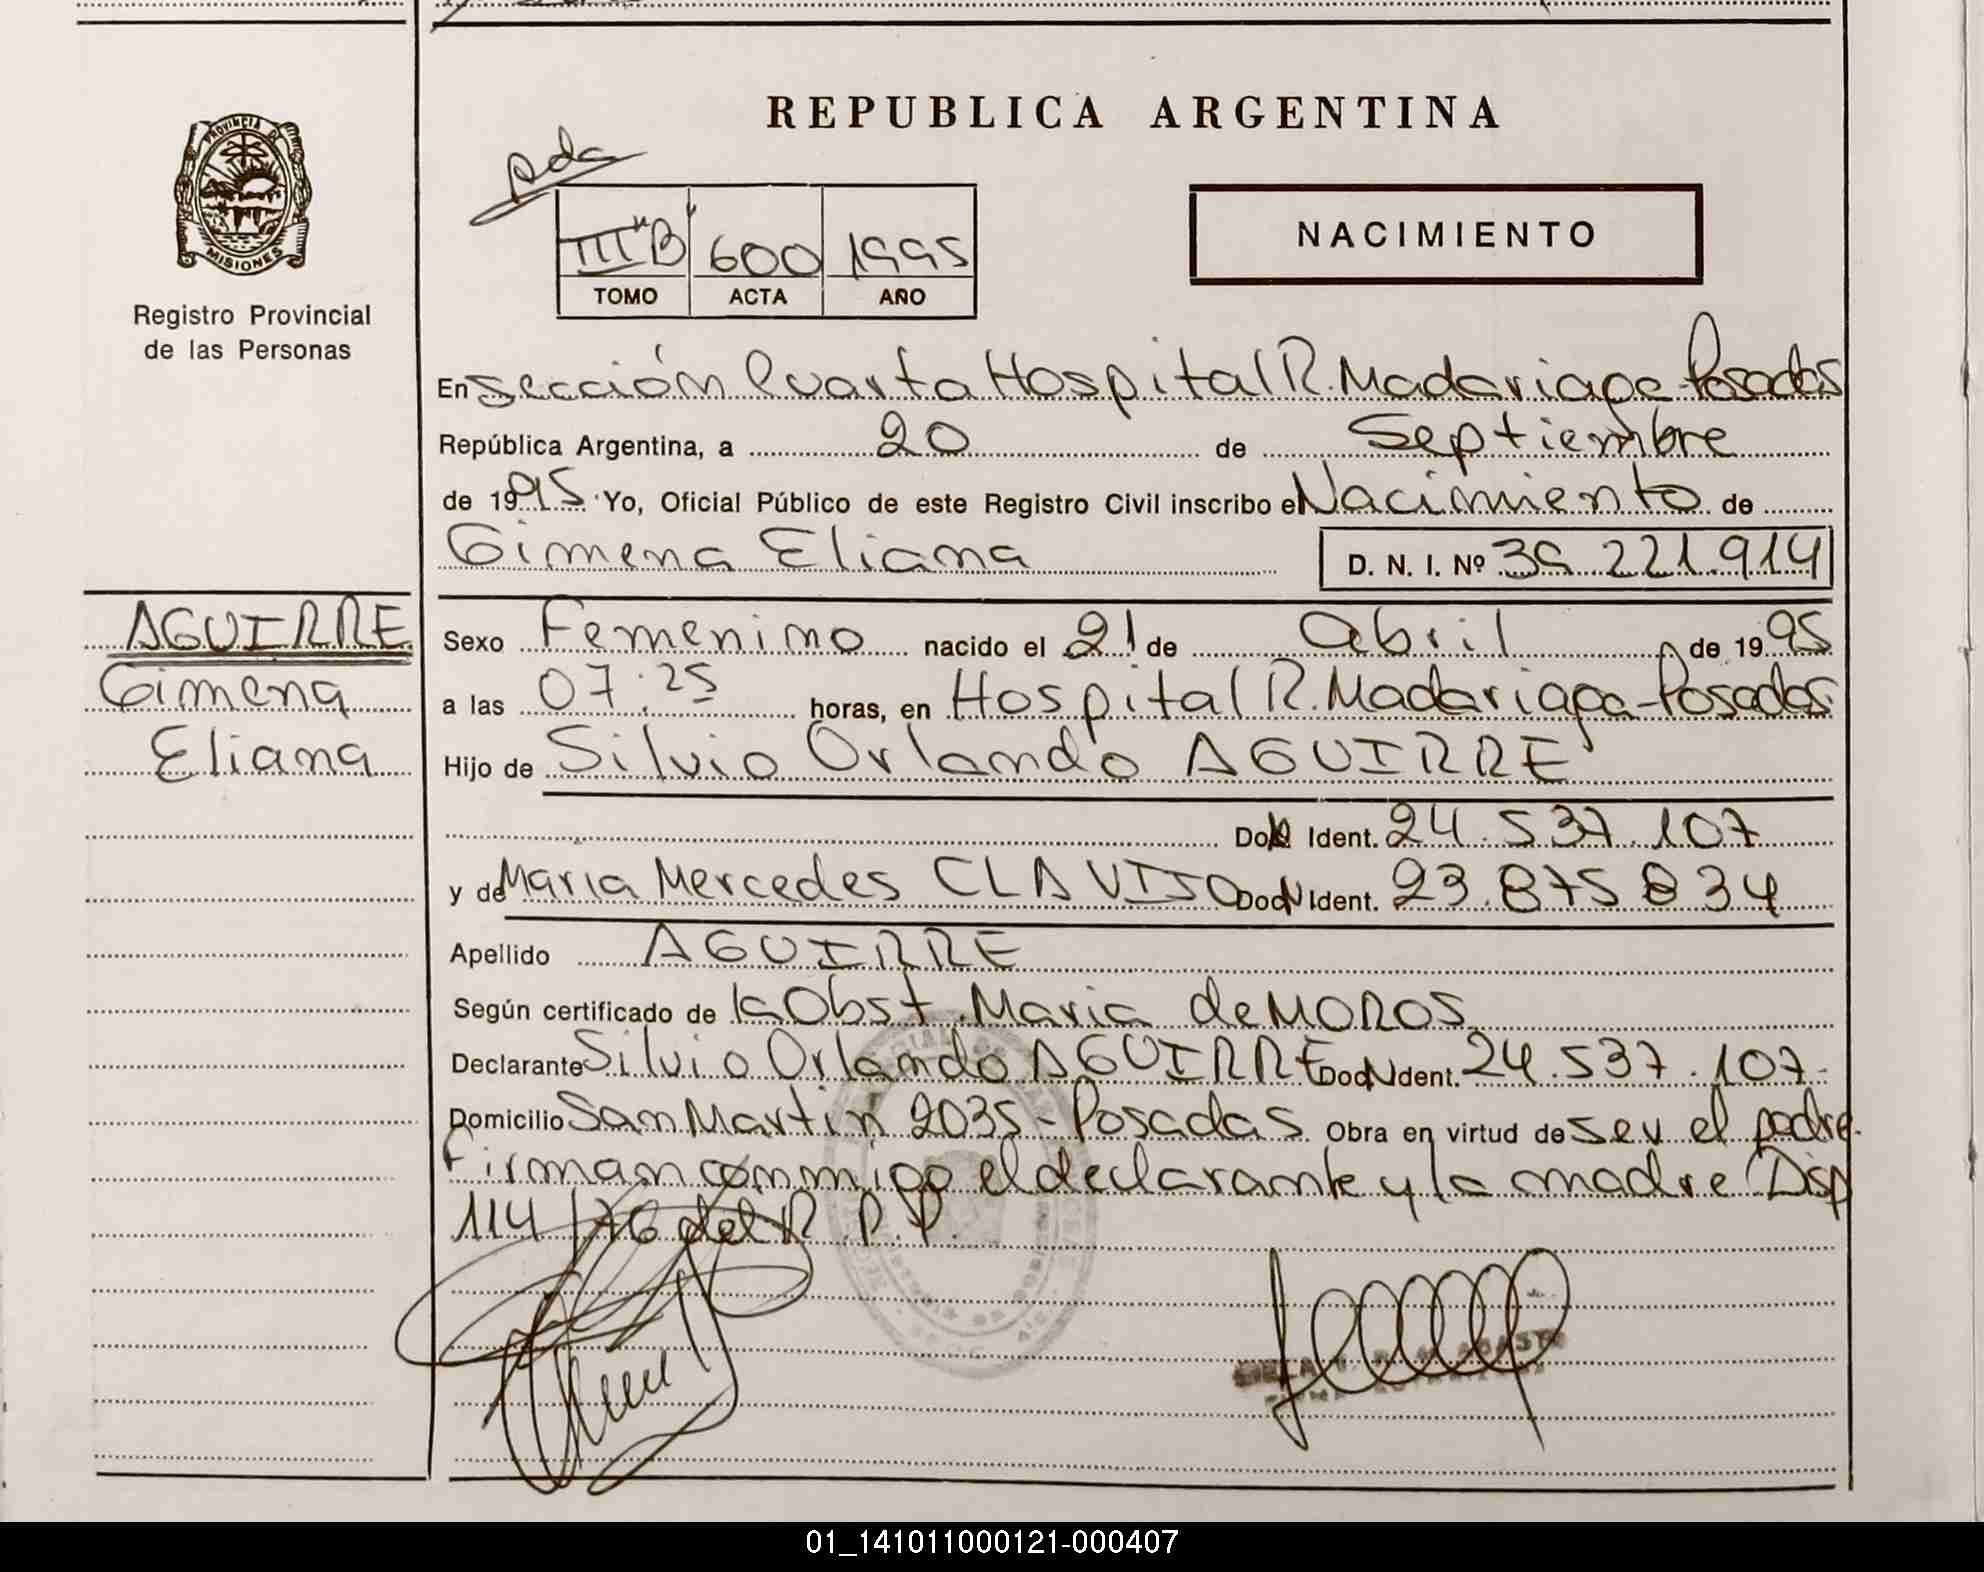 REPUBLICA ARGENTINA
PROVINCIA DE
MISIONES
Registro Provincial
de las Personas
pda
III "B" 600 1995
TOMO ACTA AÑO
NACIMIENTO
En sección Cuarta Hospital R. Madariaga - Posadas
República Argentina, a 20 de Septiembre
de 1995 Yo, Oficial Público de este Registro Civil inscribo el Nacimiento de
Gimena Eliana D. N. I. Nº 39.221.914
AGUIRRE
Gimena
Eliana
Sexo Femenino nacido el 21 de Abril de 1995
a las 07:25 horas, en Hospital R. Madariaga - Posadas
Hijo de Silvio Orlando AGUIRRE
Ident. 24.537.107
y de Maria Mercedes CLAVIJO Ident. 23.875.834
Apellido AGUIRRE
Según certificado de la Obst. Maria de MOROS
Declarante Silvio Orlando AGUIRRE Ident. 24.537.107-
Domicilio San Martin 2035 - Posadas Obra en virtud de ser el padre.
Firman conmigo el declarante y la madre Disp
114/76 del R.P.P.
01_141011000121-000407